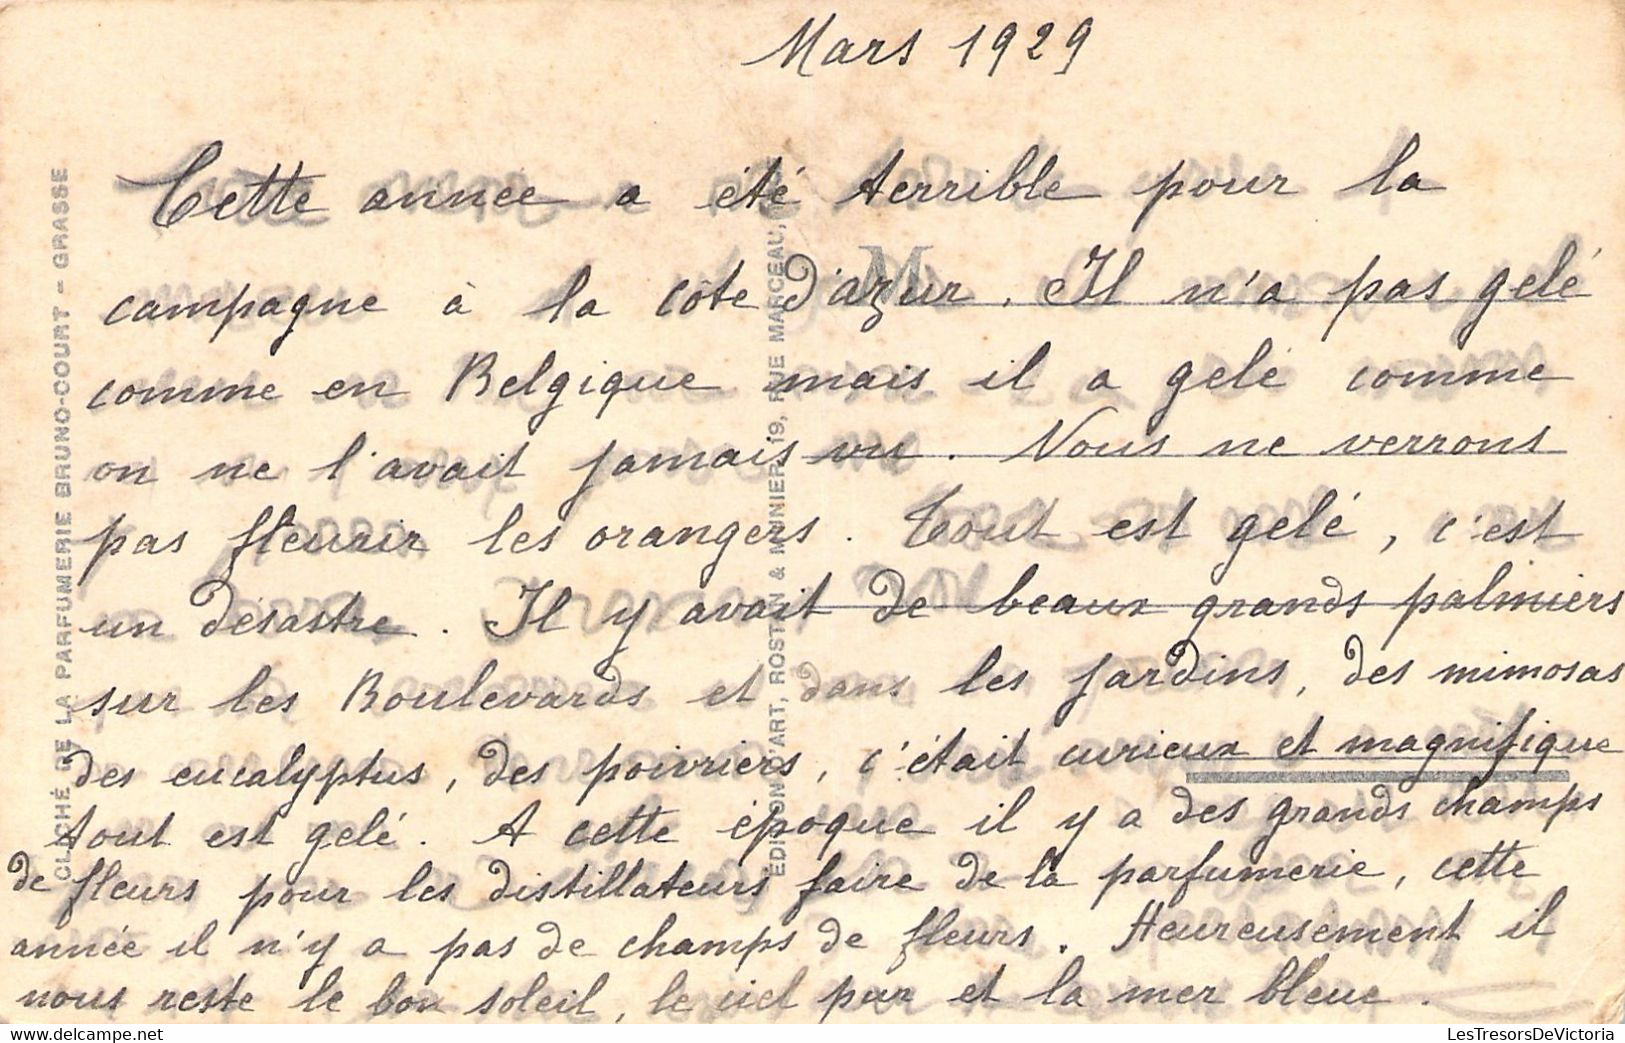 Mars 1929
Cette annee a été terrible pour la
campagne à la côte d'azur. Il n'a pas gelé
comme en Belgique mais il a gelé comme
on ne l'avait jamais vu. Nous ne verrons
pas fleurir les orangers. Tout est gelé, c'est
un désastre. Il y avait de beaux grands palmiers
sur les Boulevards et dans les jardins, des mimosas
des eucalyptus, des poivriers, c'était curieux et magnifique
tout est gelé. A cette époque il y a des grands champs
de fleurs pour les distillateurs faire de la parfumerie, cette
année il n'y a pas de champs de fleurs. Heureusement il
nous reste le bon soleil, le ciel pur et la mer bleue.
CLICHÉ DE LA PARFUMERIE BRUNO-COURT - GRASSE
EDITION D'ART, ROSTAN & MUNIER, 19, RUE MARCEAU,
M
LesTresorsDeVictoria